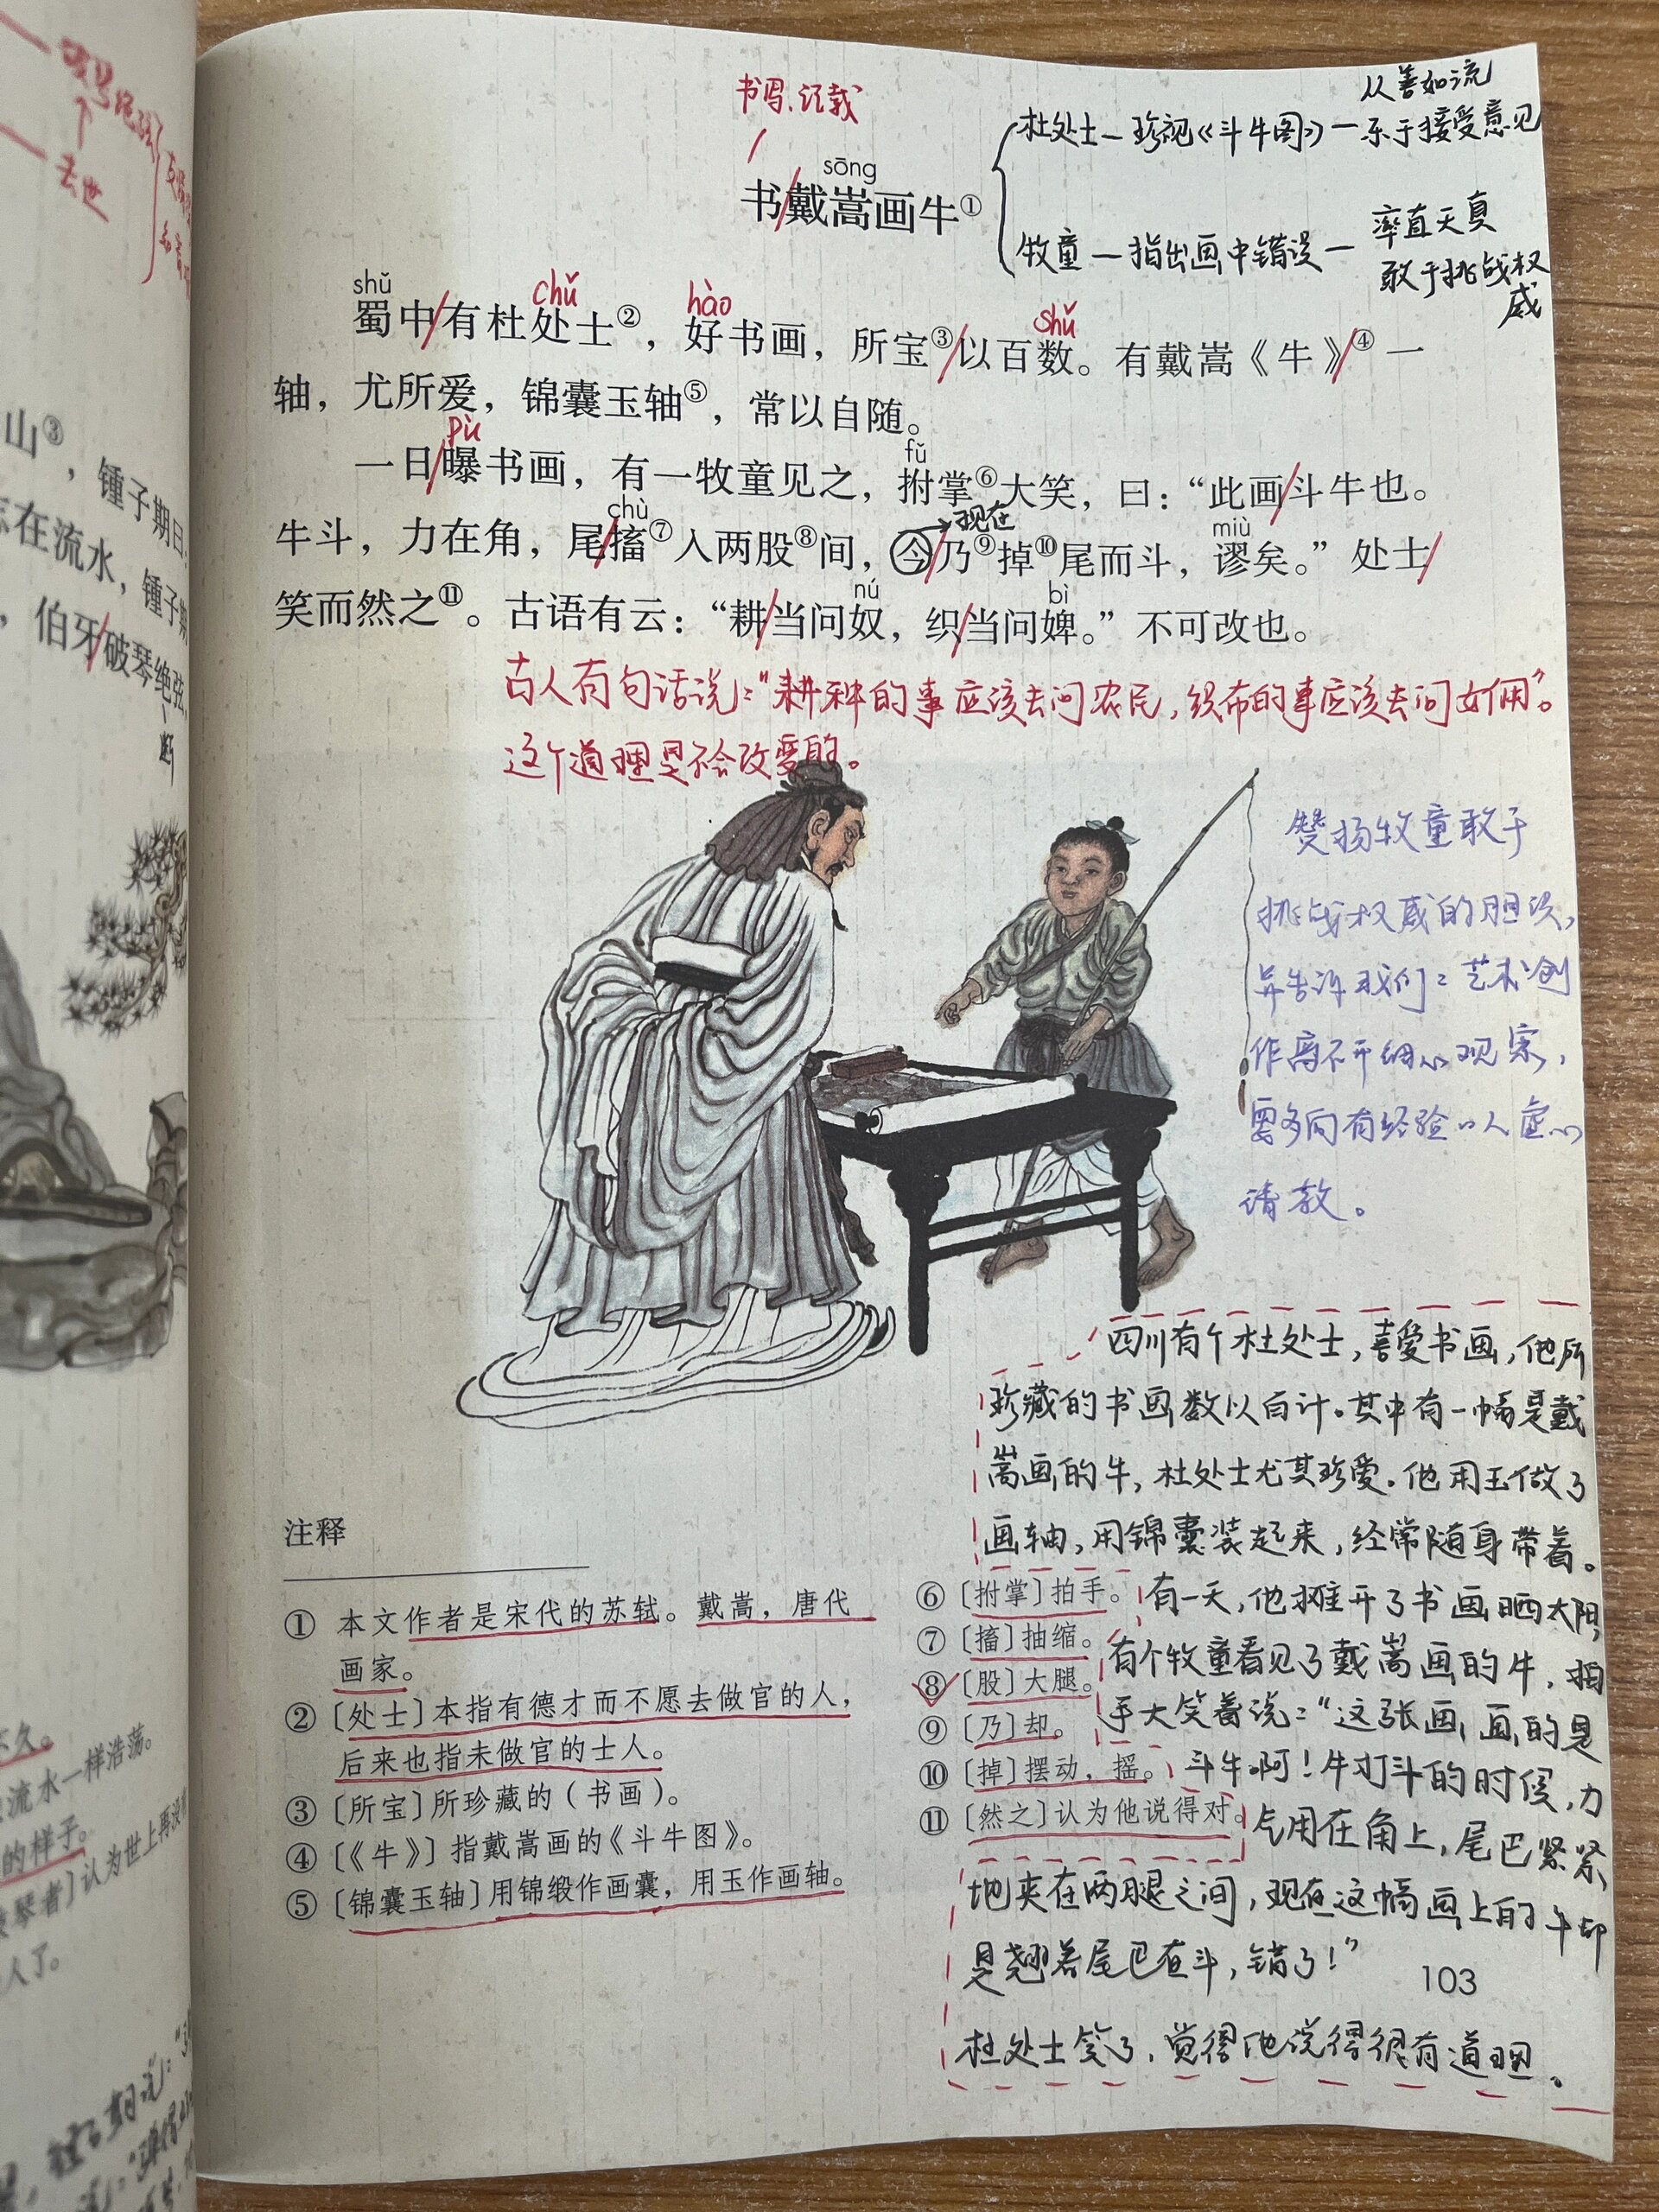 书写、记载
从善如流
杜处士—珍视《斗牛图》—乐于接受意见
sōng
书/戴嵩画牛①
牧童—指出画中错误—率直天真
敢于挑战权
威
shǔ chǔ hào shǔ
蜀中/有杜处士②，好书画，所宝③/以百数。有戴嵩《牛》/④一
轴，尤所爱，锦囊玉轴⑤，常以自随。
pù fǔ
一日/曝书画，有一牧童见之，拊掌⑥大笑，曰：“此画/斗牛也。
chù 现在 miù
牛斗，力在角，尾/搐⑦入两股⑧间，今/乃⑨掉⑩尾而斗，谬矣。”处士/
nú bì
笑而然之⑪。古语有云：“耕/当问奴，织/当问婢。”不可改也。
古人有句话说：“耕种的事应该去问农民，织布的事应该去问女佣”。
这个道理是不会改变的。
赞扬牧童敢于
挑战权威的胆识，
并告诉我们：艺术创
作离不开细心观察，
要多向有经验的人虚心
请教。
四川有个杜处士，喜爱书画，他所
珍藏的书画数以百计。其中有一幅是戴
嵩画的牛，杜处士尤其珍爱。他用玉做了
画轴，用锦囊装起来，经常随身带着。
有一天，他摊开了书画晒太阳，
有个牧童看见了戴嵩画的牛，拍
手大笑着说：“这张画，画的是
斗牛啊！牛打斗的时候，力
气用在角上，尾巴紧紧
地夹在两腿之间，现在这幅画上的牛却
是翘着尾巴在斗，错了！”
杜处士笑了，觉得他说得很有道理。
注释
① 本文作者是宋代的苏轼。戴嵩，唐代
画家。
②〔处士〕本指有德才而不愿去做官的人，
后来也指未做官的士人。
③〔所宝〕所珍藏的（书画）。
④〔《牛》〕指戴嵩画的《斗牛图》。
⑤〔锦囊玉轴〕用锦缎作画囊，用玉作画轴。
⑥〔拊掌〕拍手。
⑦〔搐〕抽缩。
⑧〔股〕大腿。
⑨〔乃〕却。
⑩〔掉〕摆动，摇。
⑪〔然之〕认为他说得对。
103
去世
山③，锺子期曰：
志在流水，锺子期
，伯牙/破琴绝弦，
断
不久。
流水一样浩荡。
的样子。
琴者〕认为世上再没
人了。